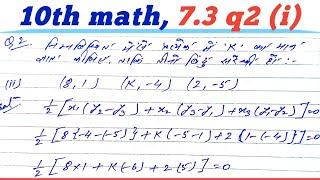 10th math, 7.3 q2 (i)
Q.2 निम्नलिखित में से प्रत्येक में 'K' का मान
ज्ञात कीजिए, ताकि तीनों बिंदु संरेखी हों।
(ii) (8, 1) (K, -4) (2, -5)
1/2 [x₁(y₂-y₃) + x₂(y₃-y₁) + x₃(y₁-y₂)] =0
1/2 [8{-4-(-5)} + K(-5-1) + 2{1-(-4)}] =0
1/2 [8×1 + K(-6) + 2(5)] =0